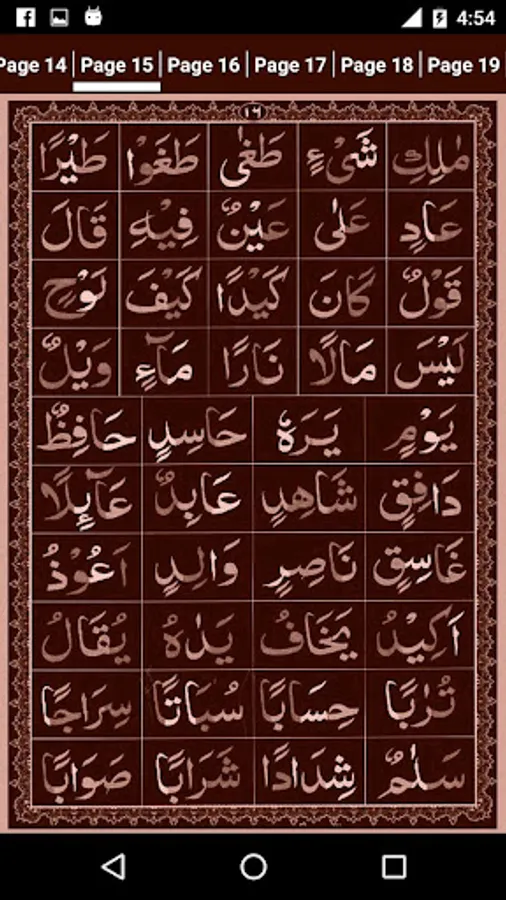 4:54
Page 14 Page 15 Page 16 Page 17 Page 18 Page 19
١٦
مٰلِكِ شَیْءٍ طَغٰی طَغَوْا طَيْرًا
عَادٍ عَلٰی عَيْنٌ فِيْهِ قَالَ
قَوْلٌ كَانَ كَيْدًا كَيْفَ لَوْحٍ
لَيْسَ مَالًا نَارًا مَآءٍ وَيْلٌ
يَوْمٍ يَرَهٗ حَاسِدٍ حَافِظٌ
دَافِقٍ شَاهِدٍ عَابِدٌ عَآئِلًا
غَاسِقٍ نَاصِرٍ وَالِدٍ اَعُوْذُ
اَكِيْدُ يَخَافُ يَدٰهُ يُقَالُ
تُرٰبًا حِسَابًا سُبَاتًا سِرَاجًا
سَلٰمٌ شِدَادًا شَرَابًا صَوَابًا